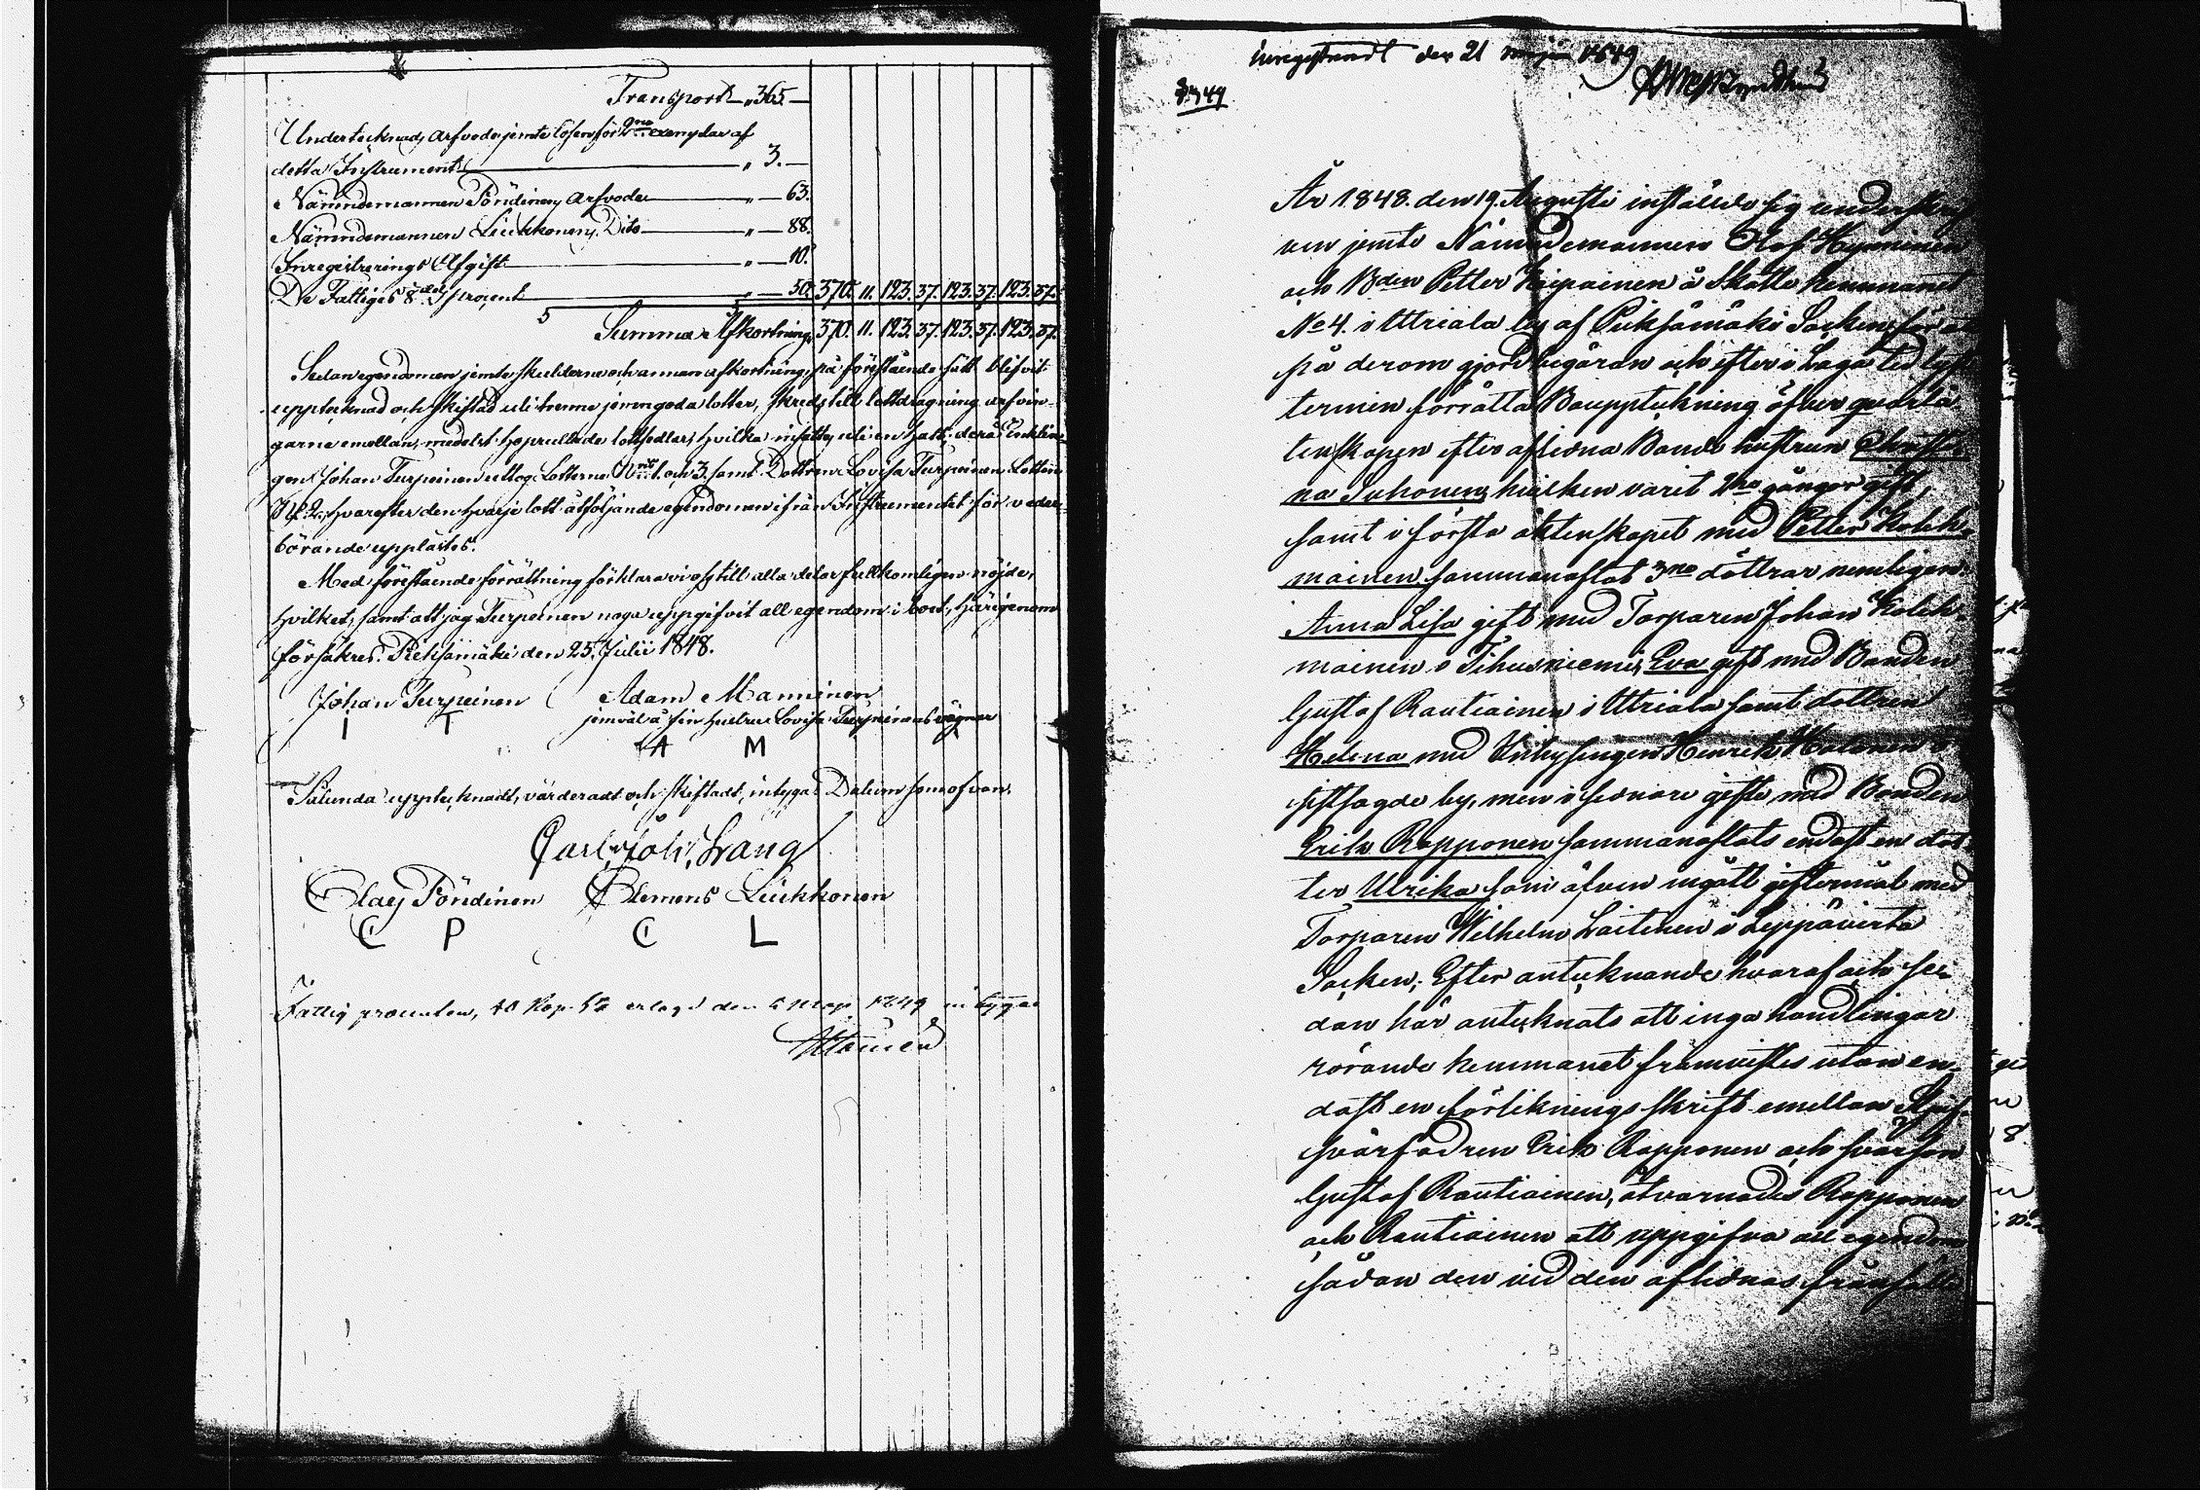 Transport „365.—
Undertecknads arfvode jemte lösen för 2ne exemplar af
detta Instrument „ 3.—
Nämndemannen Pöndinens arfvode „ — 63.
Nämndemannen Liukkonens Dito „ — 88.
Inregistrerings Afgift „ — 10.
De Fattiges 8dels procent „ — 50. 370. 11. 123. 37. 123. 37. 123. 37.
Summa Afkortning 370. 11. 123. 37. 123. 37. 123. 37.
Sedan egendomen jemte skulderne och annan afkortning, på förestående sätt blifvit
upptecknad och skiftad uti trenne jemngoda lotter, skreds till lottdragning arfvin-
garne emellan, medelst hoprullade lottsedlar, hvilka insattes uti en hatt; derå Enklin-
gen Johan Turpeinen uttog Lotterna N:ris 1. och 3. samt Dottren Lovisa Turpeinen Lotten
N:o 2. hvarefter den hvarje lott åtföljande egendomen ifrån Instrumentet för veder-
börande upplästes.
Med förestående förrättning förklara vi oss till alla delar fullkomligen nöjde,
hvilket, samt att jag Turpeinen noga uppgifvit all egendom i boet, härigenom
försäkres. Pieksämäki den 25. Julii 1848.
Johan Turpeinen Adam Manninen
jemväl å sin hustru Lovisa Turpeinens vägnar
I T A M
Sålunda upptecknadt, värderadt och skiftadt, intygas Datum som ofvan.
Carl Joh. Lang
Olas Pöndinen Clemens Liukkonen
O P C L
Fattig procenten, 40 Kop. Sr erlagd den 6 Maji 1849 intygar
Inregistreradt den 21 Maji 1849
År 1848. den 19. Augusti inställde sig underskrif
ven jemte Nämndemannen Olof Hynninen
och Bden Petter Kiipainen å Skatte hemmanet
No 4. i Utriala by af Pieksämäki Socken för at
på derom gjord begäran och efter i Laga tid
termin förrätta Boupptekning öfver qvarlå-
tenskapen efter aflidna Bonde hustrun Christi-
na Suhonen, hvilken varit 2ne gånger gift,
samt i första äktenskapet med Petter Koleh-
mainen sammanaflat 3ne döttrar nemligen:
Anna Lisa gift med Torparen Johan Koleh-
mainen i Tihusniemi, Eva gift med Bonden
Gustaf Rautiainen i Utriala samt dottren
Helena med Inhysingen Henrik Halonen i
sistsagde by, men i sednare gifte med Bonden
Erik Repponen sammanaflats endast en dot-
ter Ulrika som äfven ingått giftermål med
Torparen Wilhelm Laitinen i Leppävirta
Socken; Efter antecknande hvaraf och se-
dan här antecknats att inga handlingar
rörande hemmanet framvistes utan en-
dast en förliknings skrift emellan Styf-
svärfadren Erik Repponen och svärson
Gustaf Rautiainen, åtvarnades Repponen
och Rautiainen att uppgifva all egendom
sådan den vid den aflidnas frånfälle